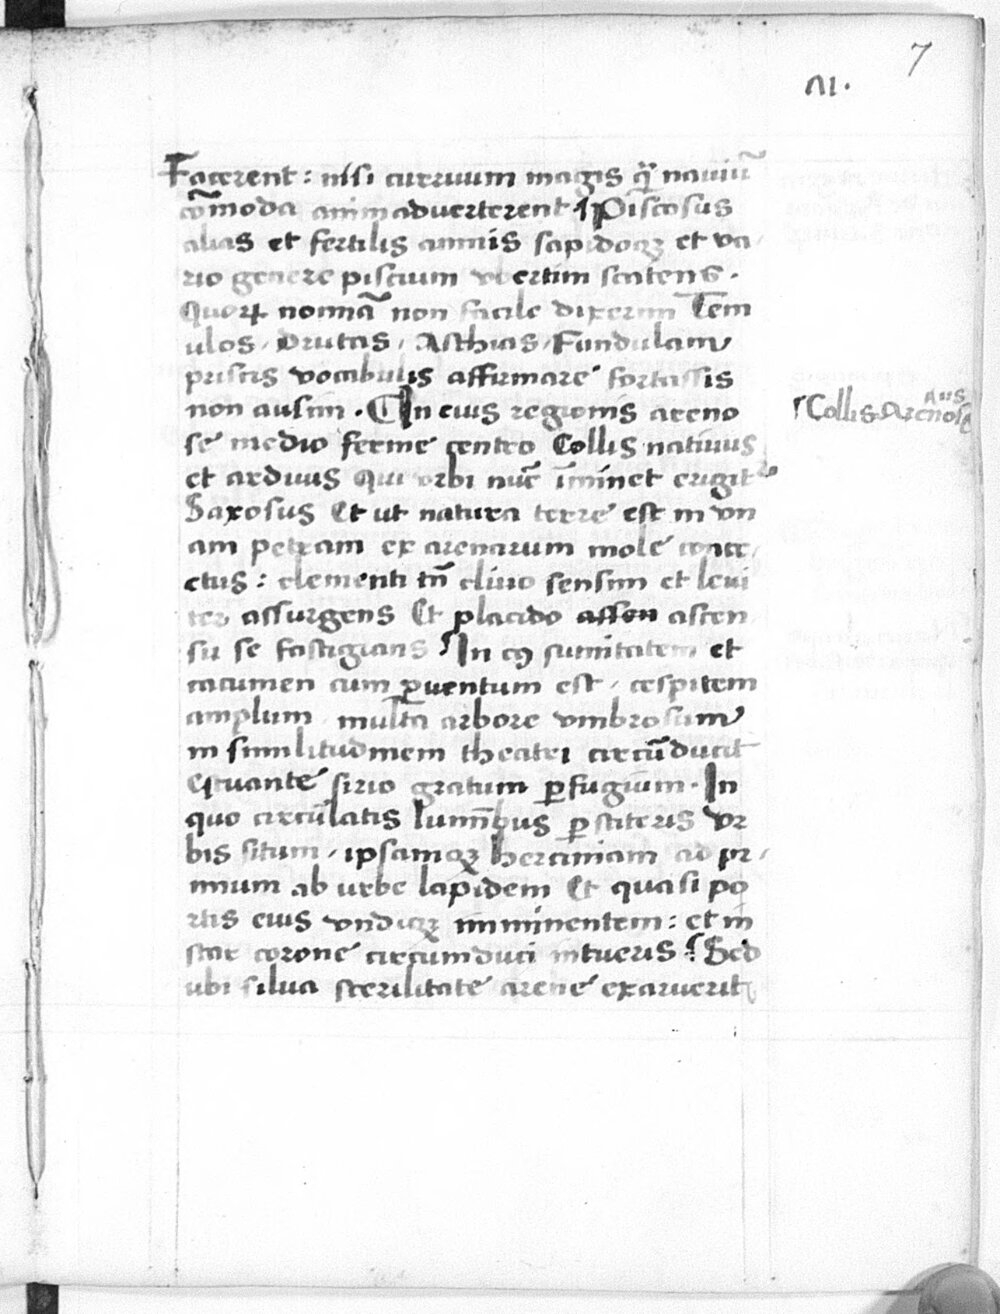 7
VI.
Facerent: nisi curuum magis q̃ nauiũ
cõmoda animaduerterent ¶ Piscosus
alias et fertilis amnis sapidoqꝫ et va
rio genere piscium vbertim scatens.
Quoꝝ nomĩa non facile dixerim Tem
ulos, Drutas, Asthias, Fundulam
priscis vocabulis affirmare fortassis
non ausim. ¶ In eius regionis areno
se medio ferme centro Collis natiuus
Collis Arenosus
et arduus qui vrbi nũc ĩminet erigit
Saxosus Et ut natura terre est in vn
am petram ex arenarum mole concr
etus: clementi tñ cliuo sensim et leui
ter assurgens Et placido assen ascen
su se fastigians ¶ In cꝰ sumitatem et
cacumen cum ꝑuentum est, cespitem
amplum, multa arbore vmbrosum
in similitudinem theatri circũducit
Estuante sirio gratum ꝑfugium. In
quo circũlatis luminibus ꝑstiteris Vr
bis situm, ipsamqꝫ herciniam ad pri
mum ab vrbe lapidem Et quasi po
rtis eius vndiqꝫ imminentem: et in
star corone circumduci intueris ¶ Sed
ubi silua sterilitate arene exaruerit